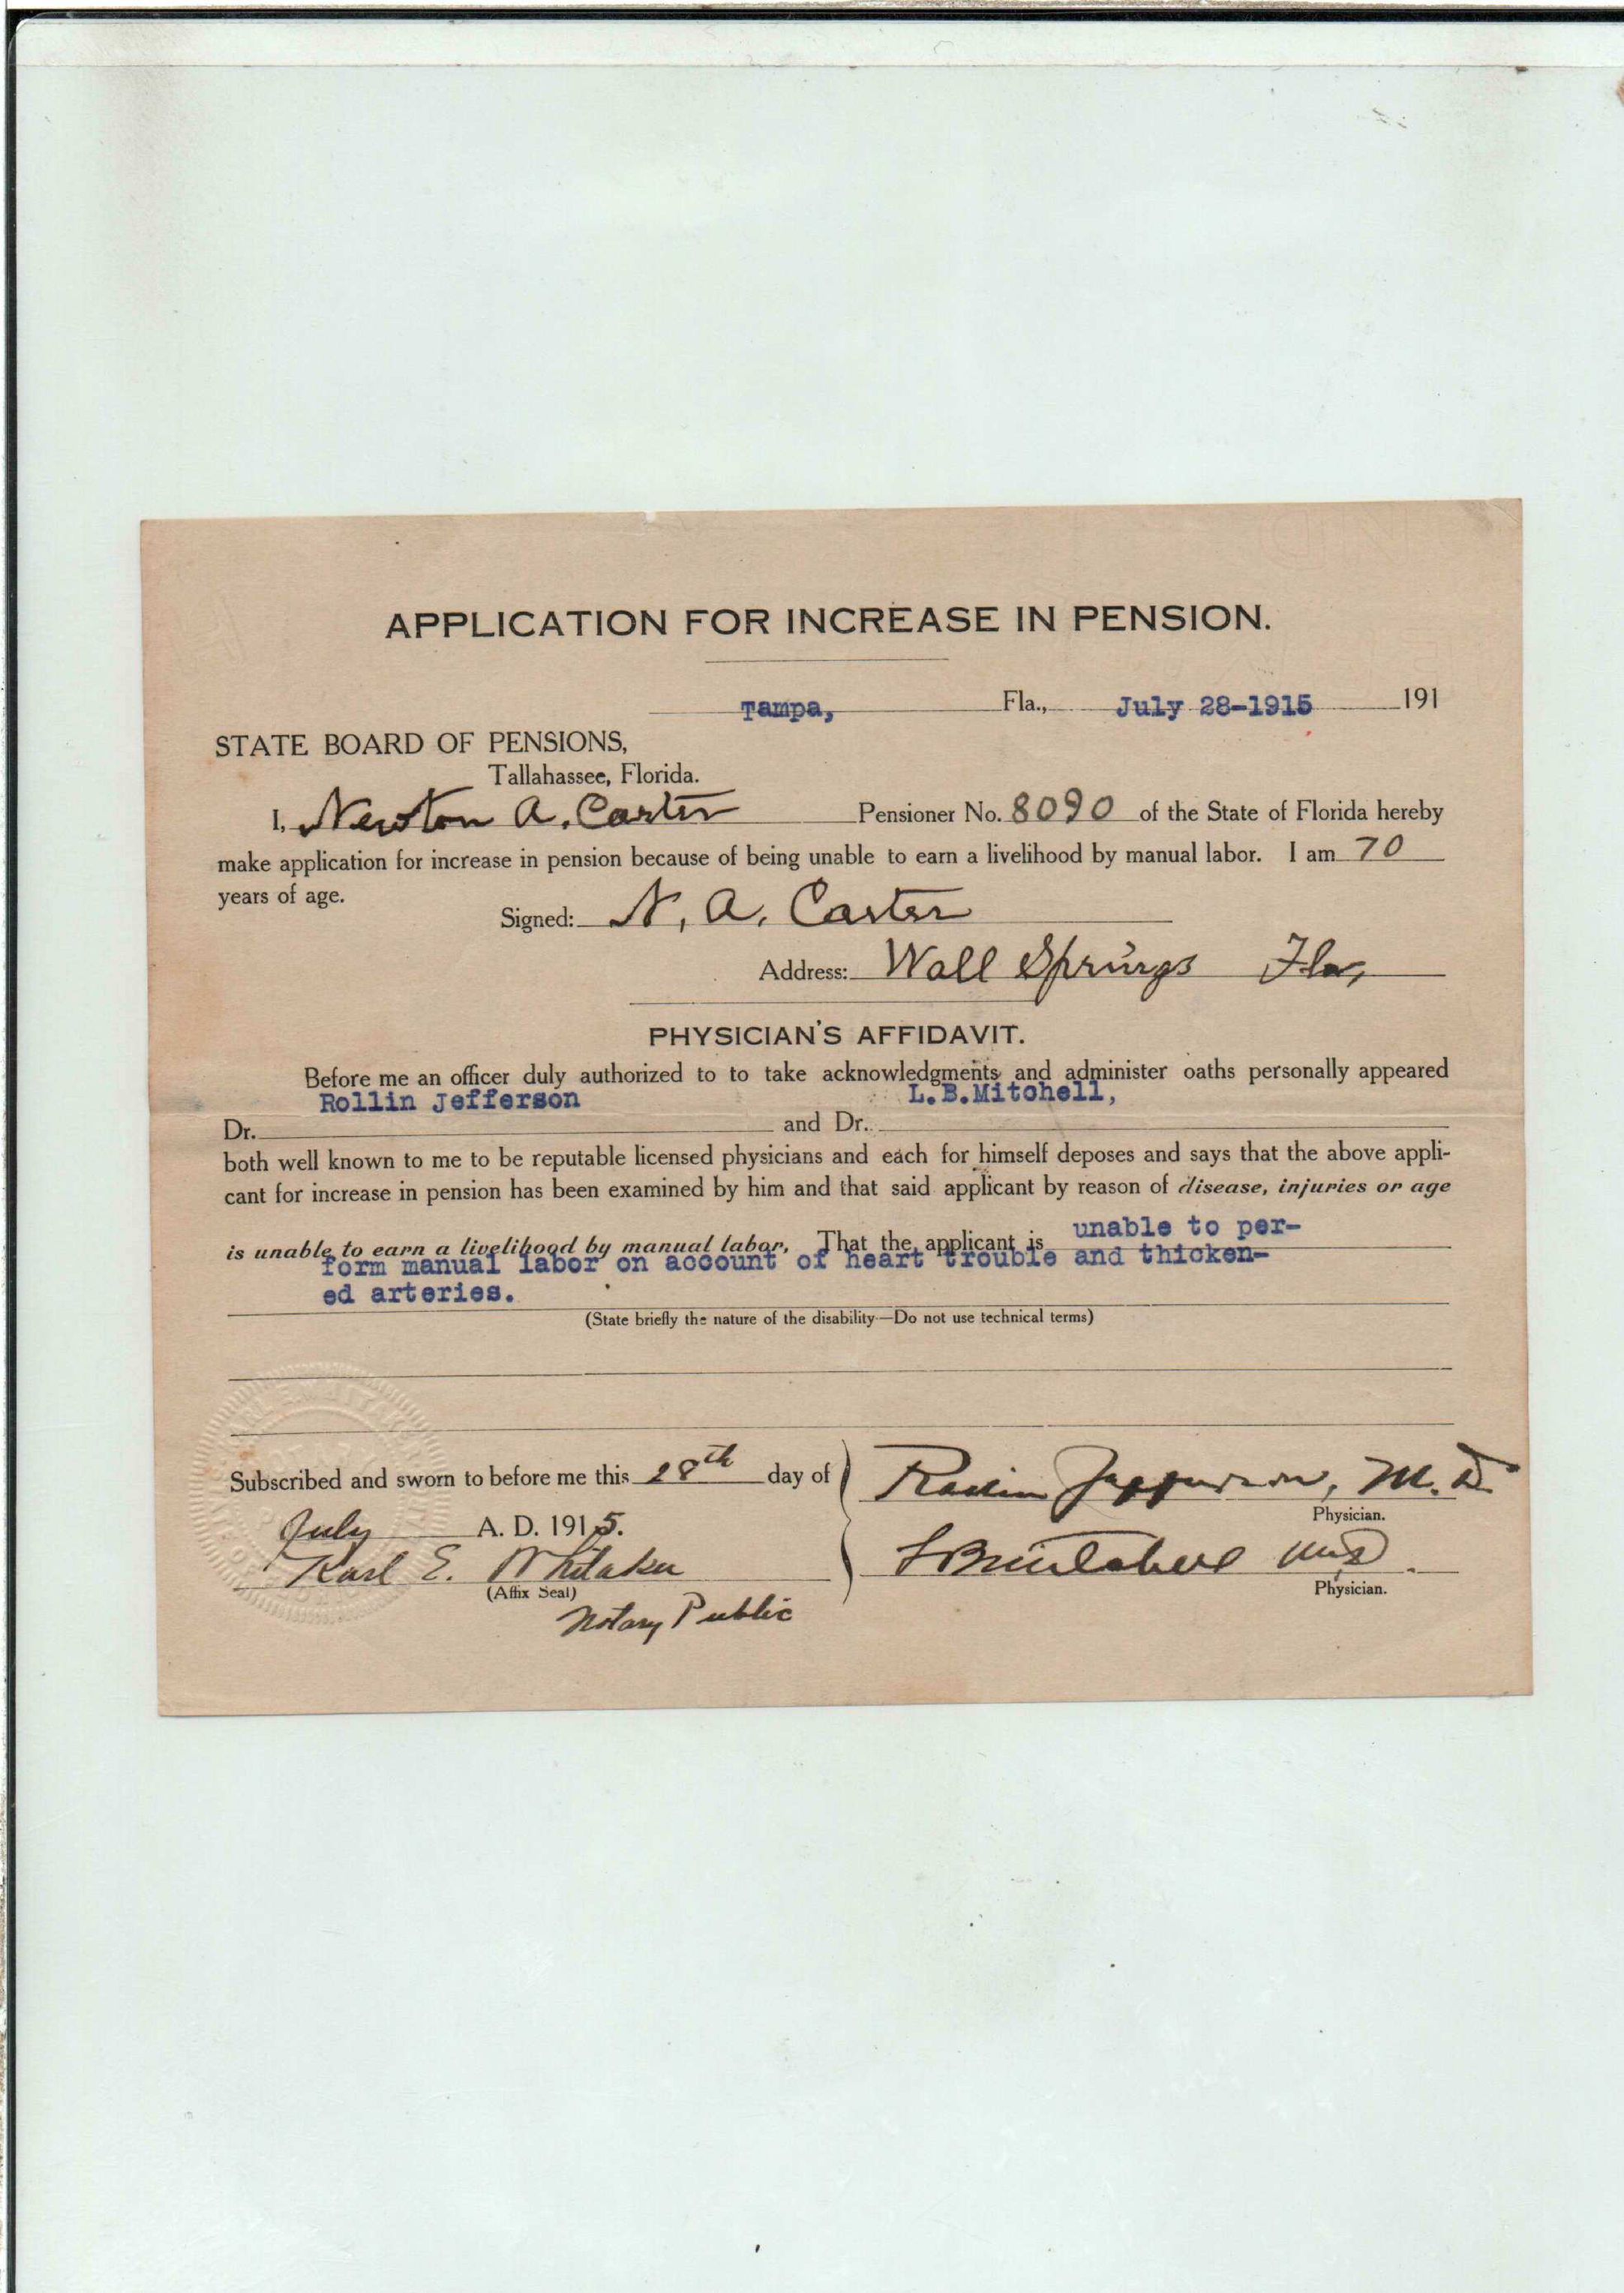 APPLICATION FOR INCREASE IN PENSION.
Tampa, Fla., July 28-1915 191
STATE BOARD OF PENSIONS,
Tallahassee, Florida.
I, Newton A. Carter Pensioner No. 8090 of the State of Florida hereby
make application for increase in pension because of being unable to earn a livelihood by manual labor. I am 70
years of age.
Signed: N. A. Carter
Address: Wall Springs Fla,
PHYSICIAN'S AFFIDAVIT.
Before me an officer duly authorized to to take acknowledgments and administer oaths personally appeared
Rollin Jefferson L.B.Mitchell,
Dr. and Dr.
both well known to me to be reputable licensed physicians and each for himself deposes and says that the above appli-
cant for increase in pension has been examined by him and that said applicant by reason of disease, injuries or age
is unable to earn a livelihood by manual labor, That the applicant is unable to per-
form manual labor on account of heart trouble and thicken-
ed arteries.
(State briefly the nature of the disability—Do not use technical terms)
Subscribed and sworn to before me this 28th day of
Rollin Jefferson, M.D.
Physician.
July A. D. 1915.
Karl E. Whitaker
(Affix Seal)
Notary Public
LBMitchell MD.
Physician.